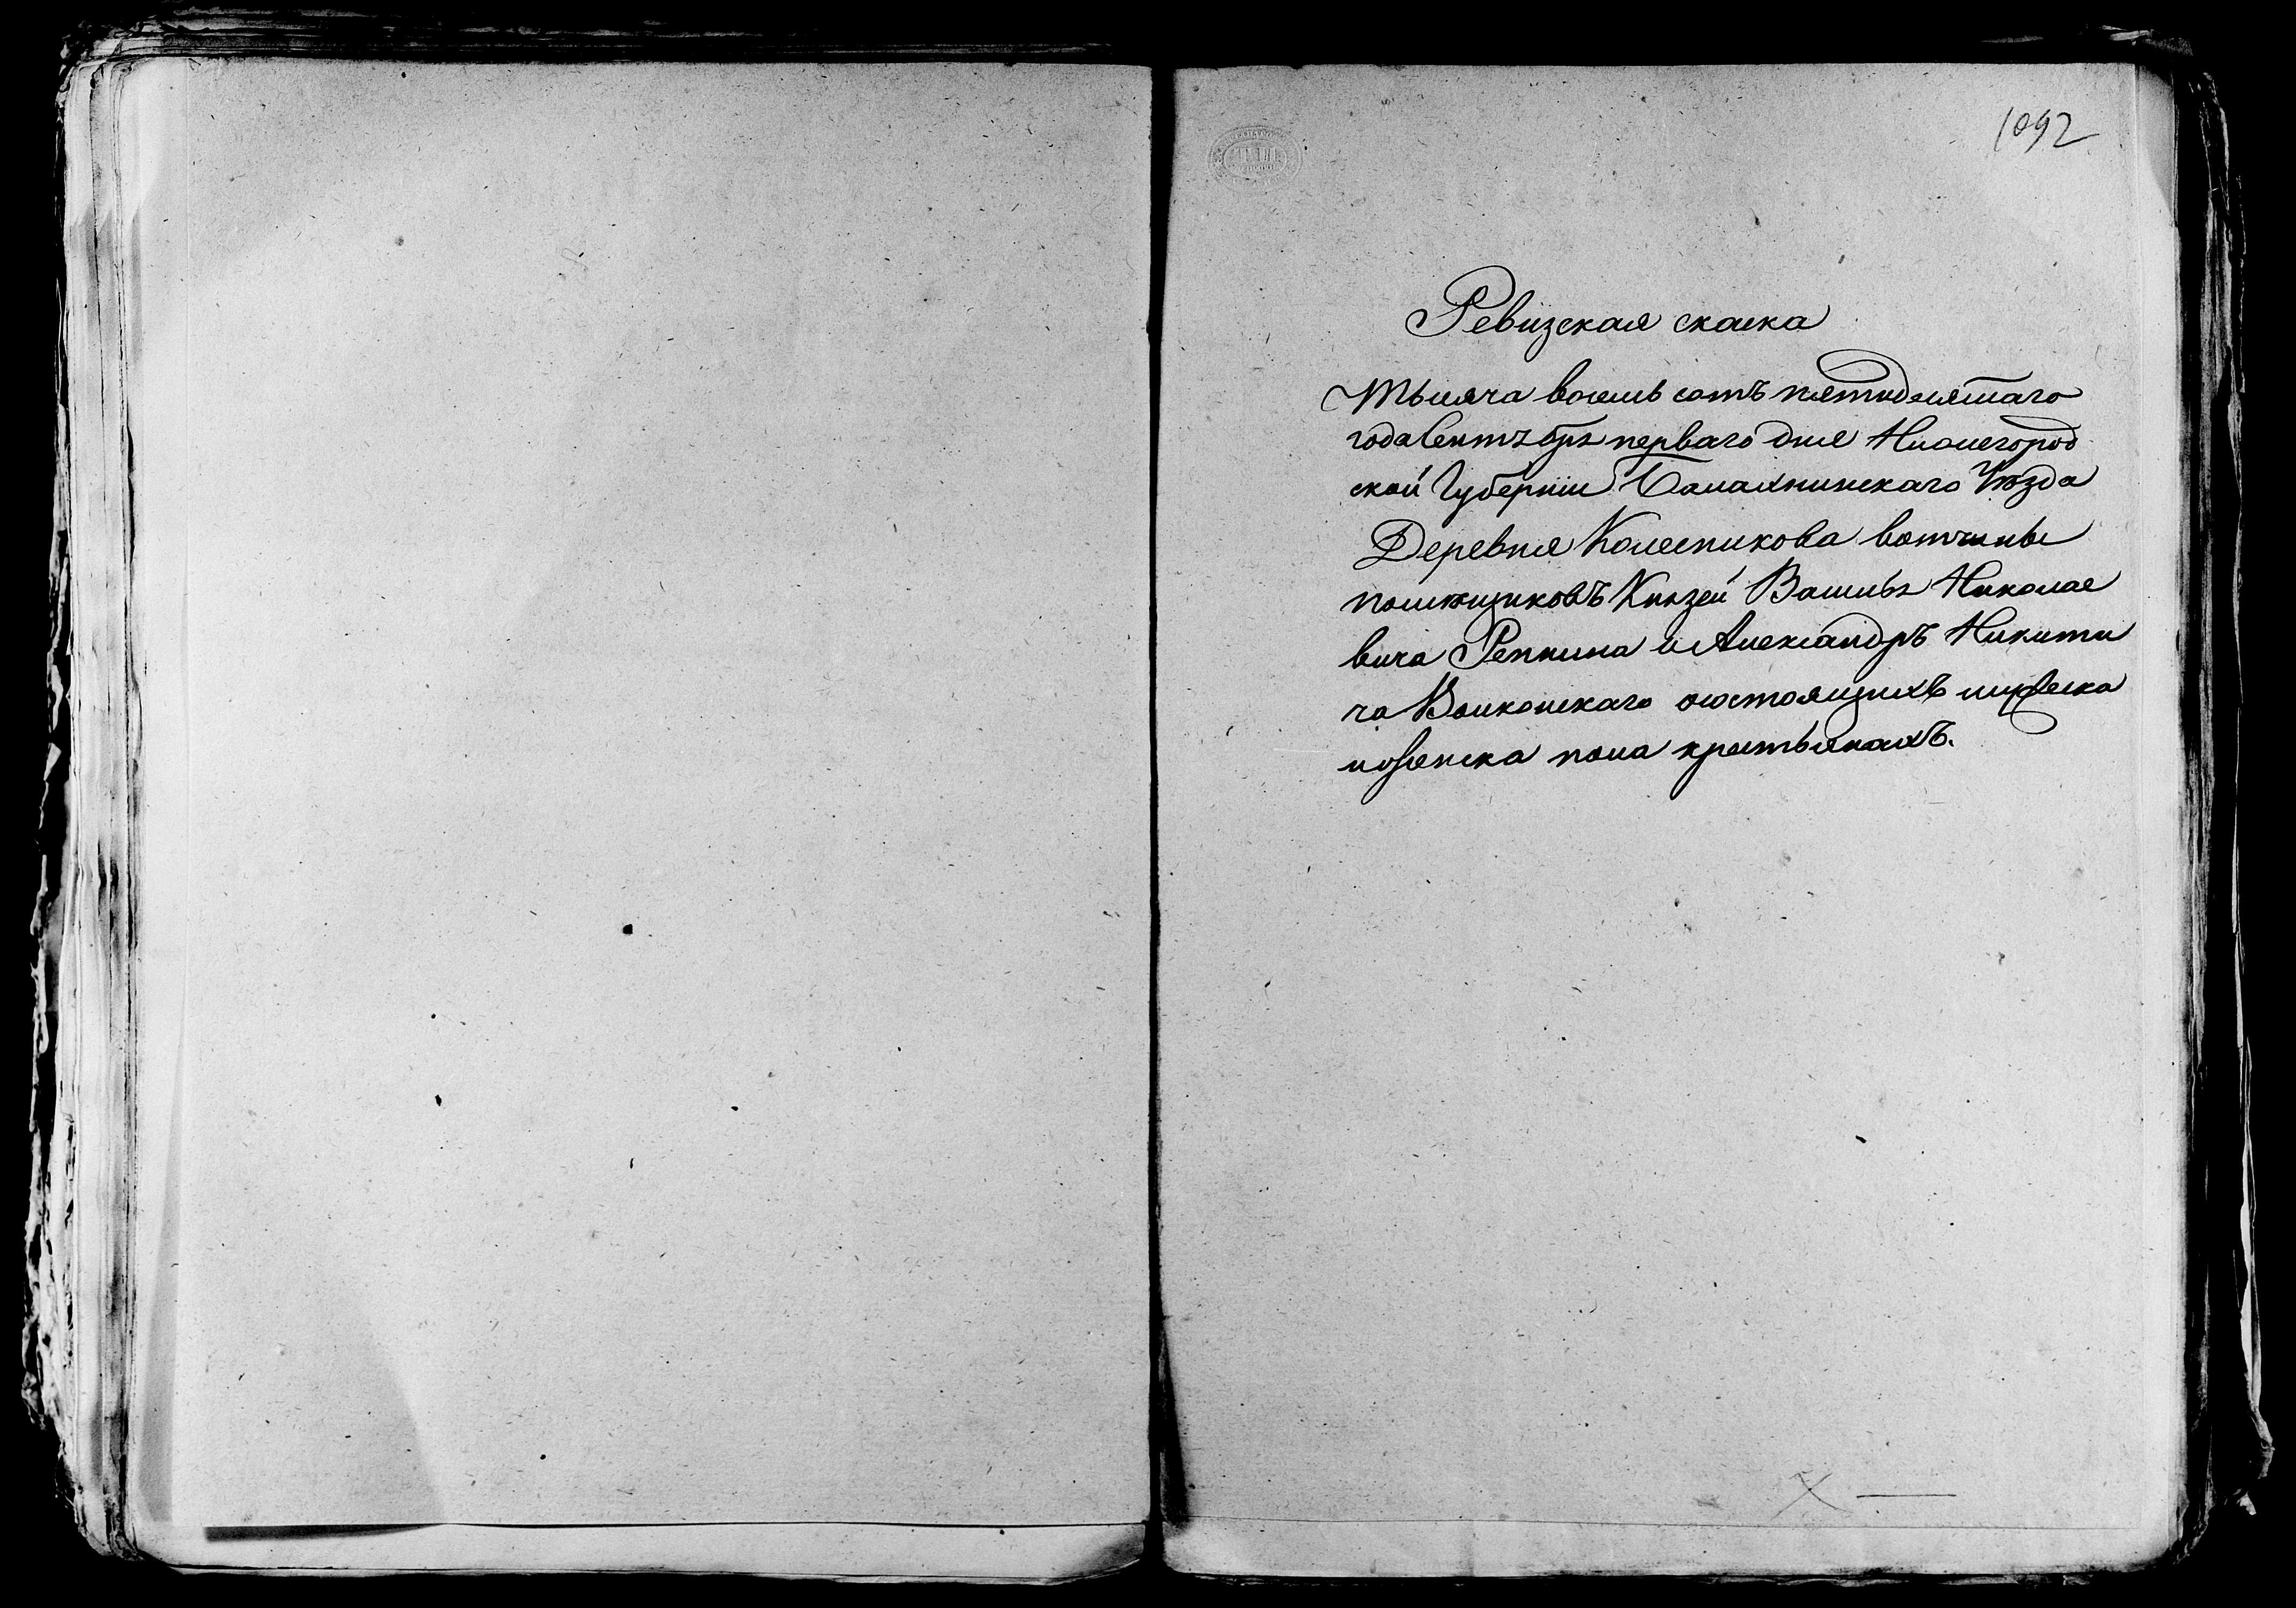 1092
Ревизская скаска
Тысяча восемь сотъ пятидесятаго
года Сентября перваго дня Нижегород
ской Губерніи Балахнинскаго Уѣзда
Деревня Колесникова вотчины
помѣщиковъ Князей Василья Николае
вича Репнина и Александръ Никити
ча Волконскаго состоящихъ мужеска
и женска пола крестьянахъ.